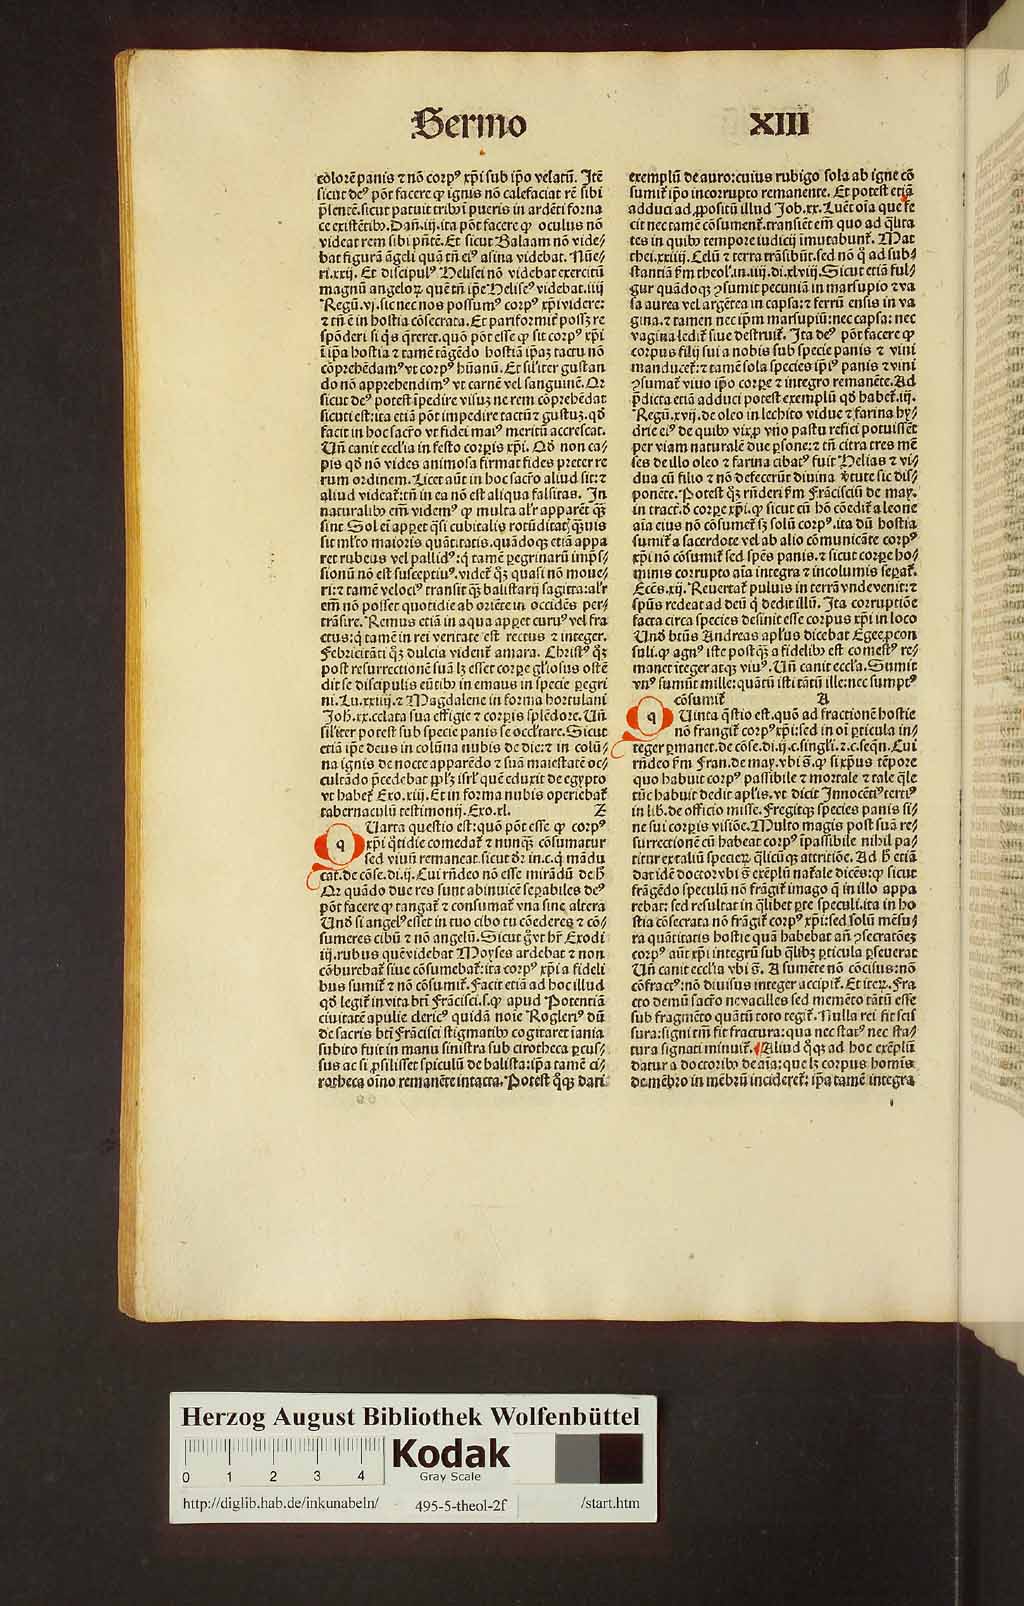 Sermo XIII
colorē panis ⁊ nō corpꝰ xp̄i sub ip̄o velatū. Itē
sicut deꝰ pōt facere ꝙ ignis nō calefaciat rē sibi
p̄sentē. sicut patuit tribꝰ pueris in ardēti forna
ce existētibꝰ. Dañ. iij. ita pōt facere ꝙ oculus nō
videat rem sibi pn̄tē. Et sicut Balaam nō vide⸗
bat figurā āgeli quā tn̄ eiꝰ asina videbat. Nūe⸗
ri. xxij. Et discipulꝰ Helisei nō videbat exercitū
magnū angeloꝝ que tn̄ ip̄e Heliseꝰ videbat. iiij
Regū. vj. sic nec nos possumꝰ corpꝰ xp̄i videre:
⁊ tn̄ ē in hostia cōsecrata. Et pariformit̄ posset re
spōderi si q̄s q̄reret. quō pōt esse ꝙ sit corpꝰ xp̄i
ī ip̄a hostia ⁊ tamē tāgēdo hostiā ip̄aꝫ tactu nō
cōprehēdamꝰ vt corpꝰ hūanū. Et sil'iter gustan
do nō apprehendimꝰ vt carnē vel sanguinē. Qꝛ
sicut deꝰ potest īpedire visuꝫ ne rem cōprehēdat
sicuti est: ita etiā pōt impedire tactū ⁊ gustuꝫ. qd̄
facit in hoc sacr̄o vt fidei maiꝰ meritū accrescat.
Un̄ canit eccl'ia in festo corꝑis xp̄i. Qd̄ non ca⸗
pis qd̄ nō vides animosa firmat fides preter re
rum ordinem. Licet aūt in hoc sacr̄o aliud sit: ⁊
aliud videat̄: tn̄ in ea nō est aliqua falsitas. In
naturalibꝰ em̄ videmꝰ ꝙ multa al'r apparēt q̄ꝫ
sint. Sol em̄ apꝑet q̄si cubitalis rotūditatꝭ q̄ꝫuis
sit ml'to maioris quātitatis. quādoqꝫ etiā appa
ret rubeus vel pallidꝰ: q̄ tamē ꝑegrinarū imp̄s⸗
sionū nō est susceptiuꝰ. videt̄ q̄ꝫ quasi nō moue⸗
ri: ⁊ tamē velociꝰ transit q̄ꝫ balistarij sagitta: al'r
em̄ nō posset quotidie ab oriēte in occidēs per⸗
trāsire. Remus etiā in aqua apꝑet curuꝰ vel fra
ctus: q̄ tamē in rei veritate est rectus ⁊ integer.
Febricitāti q̄ꝫ dulcia vident̄ amara. Christꝰ q̄ꝫ
post resurrectionē suā lꝫ esset corꝑe gl'iosus ostē
dit se discipulis eūtibꝰ in emaus in specie ꝑegri
ni. Lu. xxiiij. ⁊ Magdalene in forma hortulani
Joh. xx. celata sua effigie ⁊ corꝑis splēdore. Un̄
sil'iter potest sub specie panis se occl'tare. Sicut
etiā ip̄e deus in colūna nubis de die: ⁊ in colū⸗
na ignis de nocte apparēdo ⁊ suā maiestatē oc⸗
cultādo p̄cedebat ppl'ꝫ isrl' quē eduxit de egypto
vt habet̄ Exo. xiij. Et in forma nubis operiebat̄
tabernaculū testimonij. Exo. xl. Z
QUarta questio est: quō pōt esse ꝙ corpꝰ
xp̄i q̄tidie comedat̄ ⁊ nunq̄ꝫ cōsumatur
sed viuū remaneat. sicut dr̄ in. c. q̄ mādu
cat. de cōse. di. ij. Cui rn̄deo nō esse mirādū de h̄
Qꝛ quādo due res sunt abinuicē seꝑabiles deꝰ
pōt facere ꝙ tangat̄ ⁊ consumat̄ vna sine altera
Un̄ si angelꝰ esset in tuo cibo tu cōederes ⁊ cō⸗
sumeres cibū ⁊ nō angelū. Sicut g̊ vt hr̄ Exodi
iij. rubus quē videbat Moyses ardebat ⁊ non
cōburebat̄ siue cōsumebat̄: ita corpꝰ xp̄i a fideli
bus sumit̄ ⁊ nō cōsumit̄. Facit etiā ad hoc illud
qd̄ legit̄ in vita bt̄i Frācisci. s. ꝙ apud Potentiā
ciuitatē apulie clericꝰ quidā noīe Roglerꝰ dū
de sacris bt̄i Frācisci stigmatibꝰ cogitaret īania
subito fuit in manu sinistra sub cirotheca ꝑcus⸗
sus ac si ꝓsilisset spiculū de balista: ip̄a tamē ci⸗
rotheca oīno remanēte intacta. Potest q̄qꝫ dari
exemplū de auro: cuius rubigo sola ab igne cō
sumit̄ ip̄o incorrupto remanente. Et potest etiā
adduci ad ꝓpositū illud Job. xx. Luet oīa que fe
cit nec tamē cōsumet̄. transiēt em̄ quo ad q̄lita
tes in quibꝰ tempore iudicij īmutabunt̄. Mat
thei. xxiiij. Celū ⁊ terra trāsibūt. sed nō q̄ ad sub⸗
stantiā s̄m theol'. in. iiij. di. xlviij. Sicut etiā ful⸗
gur quādoqꝫ ꝯsumit pecuniā in marsupio ⁊ va
sa aurea vel argētea in capsa: ⁊ ferrū ensis in va
gina. ⁊ tamen nec ip̄m marsupiū: nec capsa: nec
vagina ledit̄ siue destruit̄. Ita deꝰ pōt facere ꝙ
corpus filij sui a nobis sub specie panis ⁊ vini
manducet̄: ⁊ tamē sola species ip̄iꝰ panis ⁊ vini
ꝯsumat̄ viuo ip̄o corꝑe ⁊ integro remanēte. Ad
p̄dicta etiā adduci potest exemplū qd̄ habet̄. iij.
Regū. xvij. de oleo in lechito vidue ⁊ farina hy⸗
drie eiꝰ de quibꝰ vix ꝓ vno pastu refici potuissēt
per viam naturalē due ꝑsone: ⁊ tn̄ citra tres mē
ses de illo oleo ⁊ farina cibatꝰ fuit Helias ⁊ vi⸗
dua cū filio ⁊ nō defecerūt diuina v̄tute sic dis⸗
ponēte. Potest q̄ꝫ rn̄deri s̄m Frācisciū de may.
in tract. d̄ corꝑe xp̄i. ꝙ sicut cū hō cōedit̄ a leone
aīa eius nō cōsumet̄ sꝫ solū corpꝰ. ita dū hostia
sumit̄ a sacerdote vel ab alio cōmunicāte corpꝰ
xp̄i nō cōsumit̄ sed spēs panis. ⁊ sicut corꝑe ho⸗
minis corrupto aīa integra ⁊ incolumis seꝑat̄.
Eccs. xij. Reuertat̄ puluis in terrā vnde venit: ⁊
spūs redeat ad deū q̄ dedit illū. Ita corruptiōe
facta circa species desinit esse corpus xp̄i in loco
Un̄ bt̄us Andreas apl'us dicebat Egee ꝓcon
suli. ꝙ agnꝰ iste postq̄ꝫ a fidelibꝰ est comestꝰ re⸗
manet īteger atqꝫ viuꝰ. Un̄ canit eccl'a. Sumit
vnꝰ sumūt mille: quātū isti tātū ille: nec sumptꝰ
cōsumit̄ A
QUinta q̄stio est. quō ad fractionē hostie
nō frangit̄ corpꝰ xp̄i: sed in oī ꝑticula in⸗
teger ꝑmanet. de cōse. di. ij. c. singl'i. ⁊. c. seq̄n. Cui
rn̄deo s̄m Fran. de may. vbi s̄. ꝙ si xp̄us tēpore
quo habuit corpꝰ passibile ⁊ mortale ⁊ tale q̄le
tūc habuit dedit apl'is. vt dicit Innocētiꝰ tertiꝰ
in lib. de officio misse. Fregitqꝫ species panis si⸗
ne sui corꝑis visiōe. Multo magis post suā re⸗
surrectionē cū habeat corpꝰ īpassibile nihil pa⸗
titur ex taliū specieꝝ q̄licūqꝫ attritiōe. Ad h̄ etiā
dat idē doctor vbi s̄ exēplū nat̄ale dicēs: ꝙ sicut
frāgēdo speculū nō frāgit̄ imago q̄ in illo appa
rebat: sed resultat in q̄libet ꝑte speculi. ita in ho
stia cōsecrata nō frāgit̄ corpꝰ xp̄i: sed solū mēsu⸗
ra quātitatis hostie quā habebat an̄ ꝯsecratōeꝫ
corpꝰ aūt xp̄i integrū sub q̄libꝫ ꝑticula ꝑseuerat
Un̄ canit eccl'ia vbi s̄. A sumēte nō cōcisus: nō
cōfractꝰ: nō diuisus integer accipit̄. Et iteꝝ. Fra
cto demū sacr̄o ne vacilles sed memēto tātū esse
sub fragmēto quātū toto tegit̄. Nulla rei fit scis
sura: signi tm̄ fit fractura: qua nec statꝰ nec sta⸗
tura signati minuit̄. Aliud q̄qꝫ ad hoc exēplū
datur a doctoribꝰ de aīa: que lꝫ corpus homīs
de mēbro in mēbrū incideret̄: ip̄a tamē integra
Herzog August Bibliothek Wolfenbüttel
0 1 2 3 4
Kodak
Gray Scale
http://diglib.hab.de/inkunabeln/ 495-5-theol-2f /start.htm